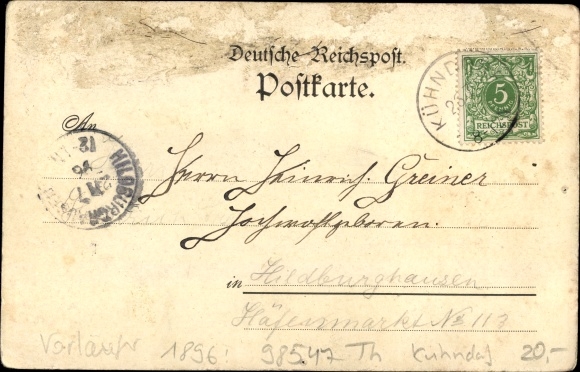 Deutsche Reichspost.
Postkarte.
KÜHND
5
REICHSPOST
An
HILDBURGHAUSEN
12
96
Herrn Heinrich Greiner
Hochwohlgeboren.
in Hildburghausen
Häfenmarkt No 113
1896! 98547 Th Kühndf 20,-